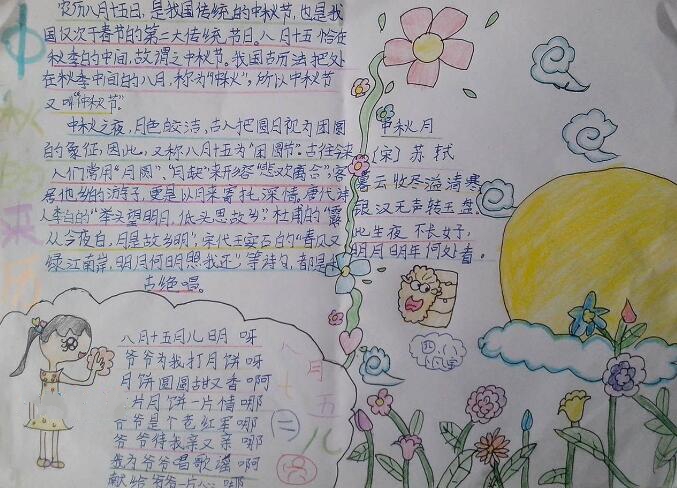 中秋的来历
农历八月十五日，是我国传统的中秋节，也是我
国仅次于春节的第二大传统节日。八月十五恰在
秋季的中间，故谓之中秋节。我国古历法把处
在秋季中间的八月，称为“仲秋”，所以中秋节
又叫“仲秋节”。
中秋之夜，月色皎洁，古人把圆月视为团圆
的象征，因此，又称八月十五为“团圆节”。古往今来
人们常用“月圆”、“月缺”来形容“悲欢离合”，客
居他乡的游子，更是以月来寄托深情。唐代诗
人李白的“举头望明月，低头思故乡”，杜甫的“露
从今夜白，月是故乡明”，宋代王安石的“春风又
绿江南岸，明月何时照我还”，等诗句，都是
古绝唱。
中秋月
（宋）苏轼
暮云收尽溢清寒
银汉无声转玉盘，
此生夜不长好，
明月明年何处看。
八月十五月儿明呀
爷爷为我打月饼呀
月饼圆圆甜又香啊
片月饼一片情哪
爷爷是个老红军哪
爷爷待我亲又亲哪
我为爷爷唱歌谣啊
献给爷爷一片心哪
八月十五
（二）